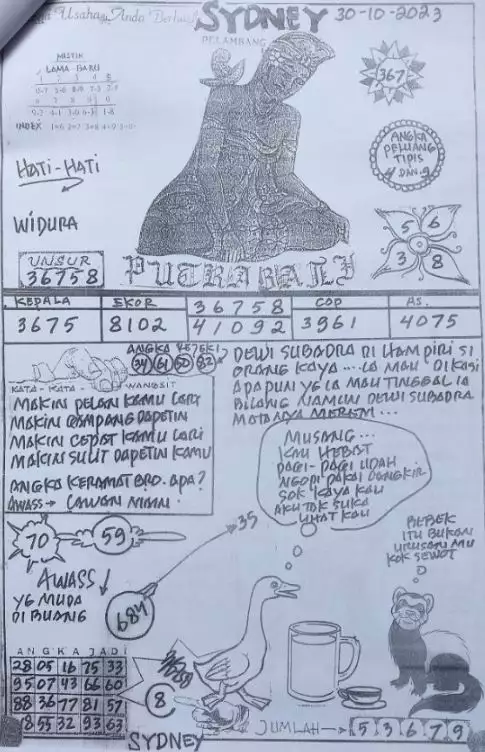 Usaha Anda Berha
SYDNEY 30-10-2023
PELAMBANG
MISTIK
LAMA BARU
INDEX 1=6 2=7 3=8 4=9 5=0
367
ANGKA
PELUANG
TIPIS
4 DAN 9
HATI-HATI
WIDURA
UNSUR
36758
PUTRA BALI
5 6
3 8
KEPALA EKOR 36758 COP AS.
3675 8102 41092 3961 4075
ANGKA REJEKI
34 61 50 82
KATA-KATA WANGSIT
MAKIN PELAN KAMU LARI
MAKIN GAMPANG DAPETIN
MAKIN CEPAT KAMU LARI
MAKIN SULIT DAPETIN KAMU
ANGKA KERAMAT BRO. APA?
AWASS → LAWAN MIMI.
DEWI SUBADRA DI HAMPIRI SI
ORANG KAYA ....IA MAU DIKASI
APAPUN YG IA MAU TINGGAL IA
BILANG NAMUN DEWI SUBADRA
MATANYA MEREM...
MUSANG...
KAU HEBAT
PAGI-PAGI UDAH
NGOPI PAKAI CANGKIR
SOK KAYA KAU
AKU TAK SUKA
LIHAT KAU
BEBEK
ITU BUKAN
URUSAN MU
KOK SEWOT
70 59
35
AWASS
YG MUDA
DI BUANG
684
ANGKA JADI
28 05 16 75 33
95 07 43 66 60
88 36 77 81 57
18 55 32 93 63
8
JUMLAH → 5 3 6 7 9
SYDNEY